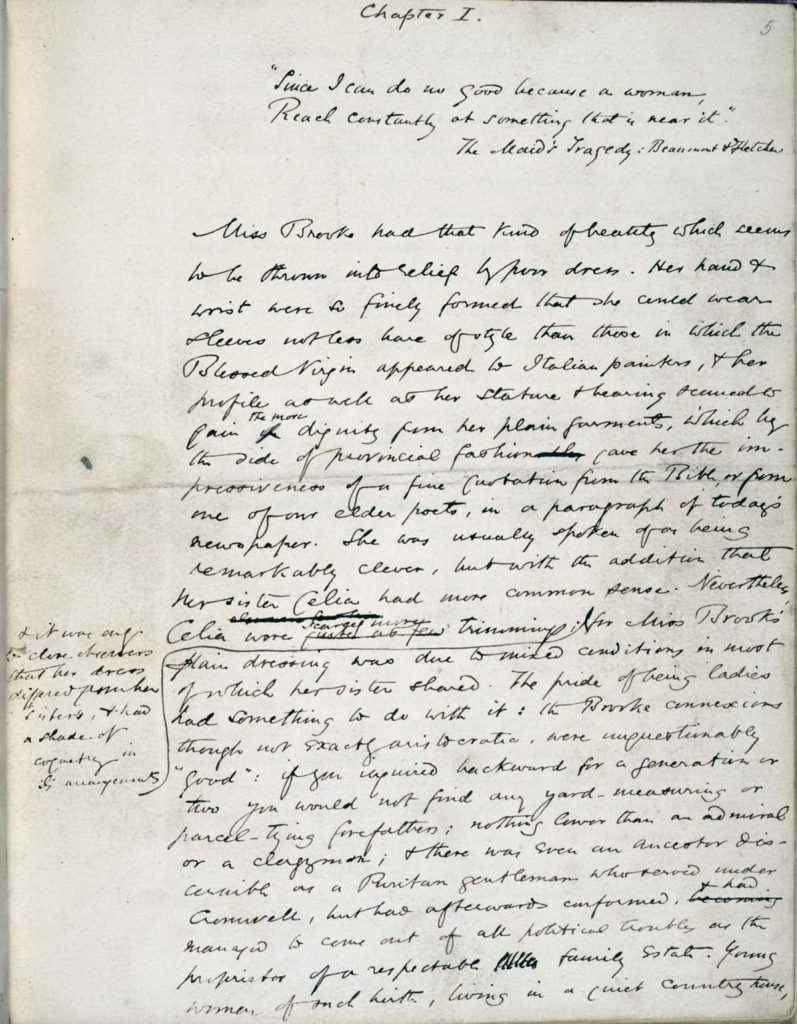 Chapter I.
5
"Since I can do no good because a woman,
Reach constantly at something that is near it".
The Maid's Tragedy: Beaumont & Fletcher
Miss Brooke had that kind of beauty which seems
to be thrown into relief by poor dress. Her hand &
wrist were so finely formed that she could wear
sleeves not less bare of style than those in which the
Blessed Virgin appeared to Italian painters, & her
profile as well as her stature & bearing seemed to
gain the more dignity from her plain garments, which by
the side of provincial fashion gave her the im-
pressiveness of a fine quotation from the Bible, or from
one of our elder poets, in a paragraph of today's
newspaper. She was usually spoken of as being
remarkably clever, but with the addition that
her sister Celia had more common sense. Nevertheless,
Celia wore scarcely more trimmings; for Miss Brooke's
plain dressing was due to mixed conditions in most
of which her sister shared. The pride of being ladies
had something to do with it: the Brooke connexions
though not exactly aristocratic, were unquestionably
"good": if you inquired backward for a generation or
two you would not find any yard-measuring or
parcel-tying forefathers; nothing lower than an admiral
or a clergyman; & there was even an ancestor dis-
cernible as a Puritan gentleman who served under
Cromwell, but had afterwards conformed, & had
managed to come out of all political troubles as the
proprietor of a respectable family estate. Young
women of such birth, living in a quiet country house,
& it was only
to close observers
that her dress
differed from her
sister's, & had
a shade of
coquetry in
its arrangements